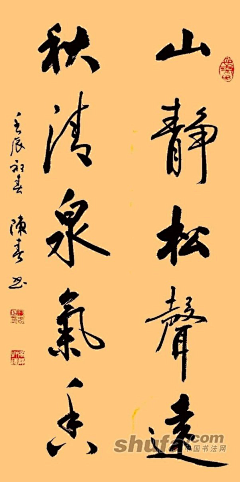 山静松聲遠
秋清泉氣香
壬辰初春 陳春
shufa.com
中国书法网